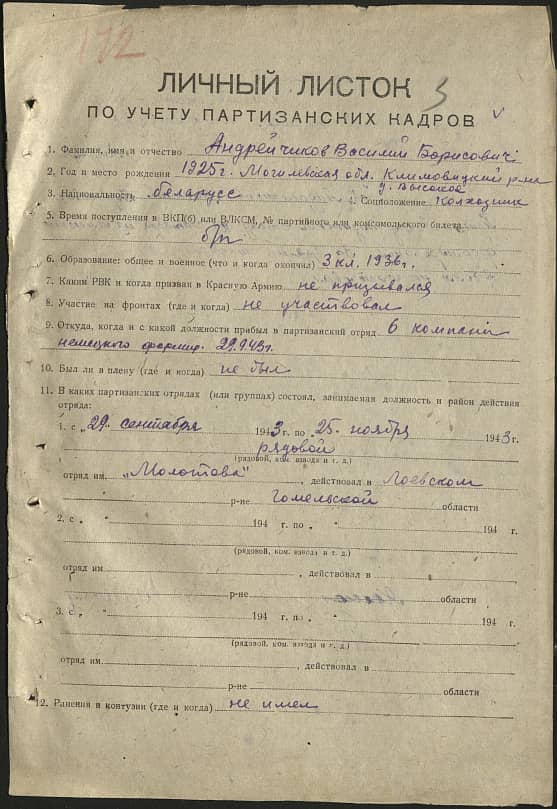 172
ЛИЧНЫЙ ЛИСТОК 3
ПО УЧЕТУ ПАРТИЗАНСКИХ КАДРОВ V
1. Фамилия, имя и отчество Андрейчиков Василий Борисович
2. Год и место рождения 1925 г. Могилевская обл. Климовицкий р-на
д. Высокое
3. Национальность беларусс 3. Соцположение Колхозник
5. Время поступления в ВКП(б) или ВЛКСМ, № партийного или комсомольского билета
б/п
6. Образование: общее и военное (что и когда окончил) 3 кл. 1936 г.
7. Каким РВК и когда призван в Красную Армию не призывался
8. Участие на фронтах (где и когда) не участвовал
9. Откуда, когда и с какой должности прибыл в партизанский отряд 6 компании
немецкого формир. 29.9.43 г.
10. Был ли в плену (где и когда) не был
11. В каких партизанских отрядах (или группах) состоял, занимаемая должность и район действия
отряда:
1. с „29 сентября 1943 г. по 25 ноября 1943 г.
рядовой
(рядовой, ком. взвода и т. д.)
отряд им. „Молотова", действовал в Лоевском
р-не Гомельской области
2. с „ " 194 г. по „ " 194 г.
(рядовой, ком. взвода и т. д.)
отряд им. , действовал в
р-не области
3. с „ " 194 г. по „ " 194 г.
(рядовой, ком. взвода и т. д.)
отряд им. , действовал в
р-не области
12. Ранения и контузии (где и когда) не имел